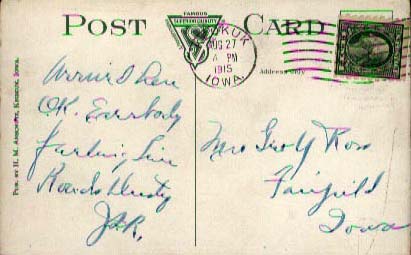 POST CARD
FAMOUS
KEOKUK
AUG 27
4 PM
1915
IOWA.
Address only
PUB. BY H. M.
KEOKUK, IOWA.
Arrived here
OK. Everybody
feeling fine
Roads Dusty
Mrs Geo Ross
Fairfield
Iowa